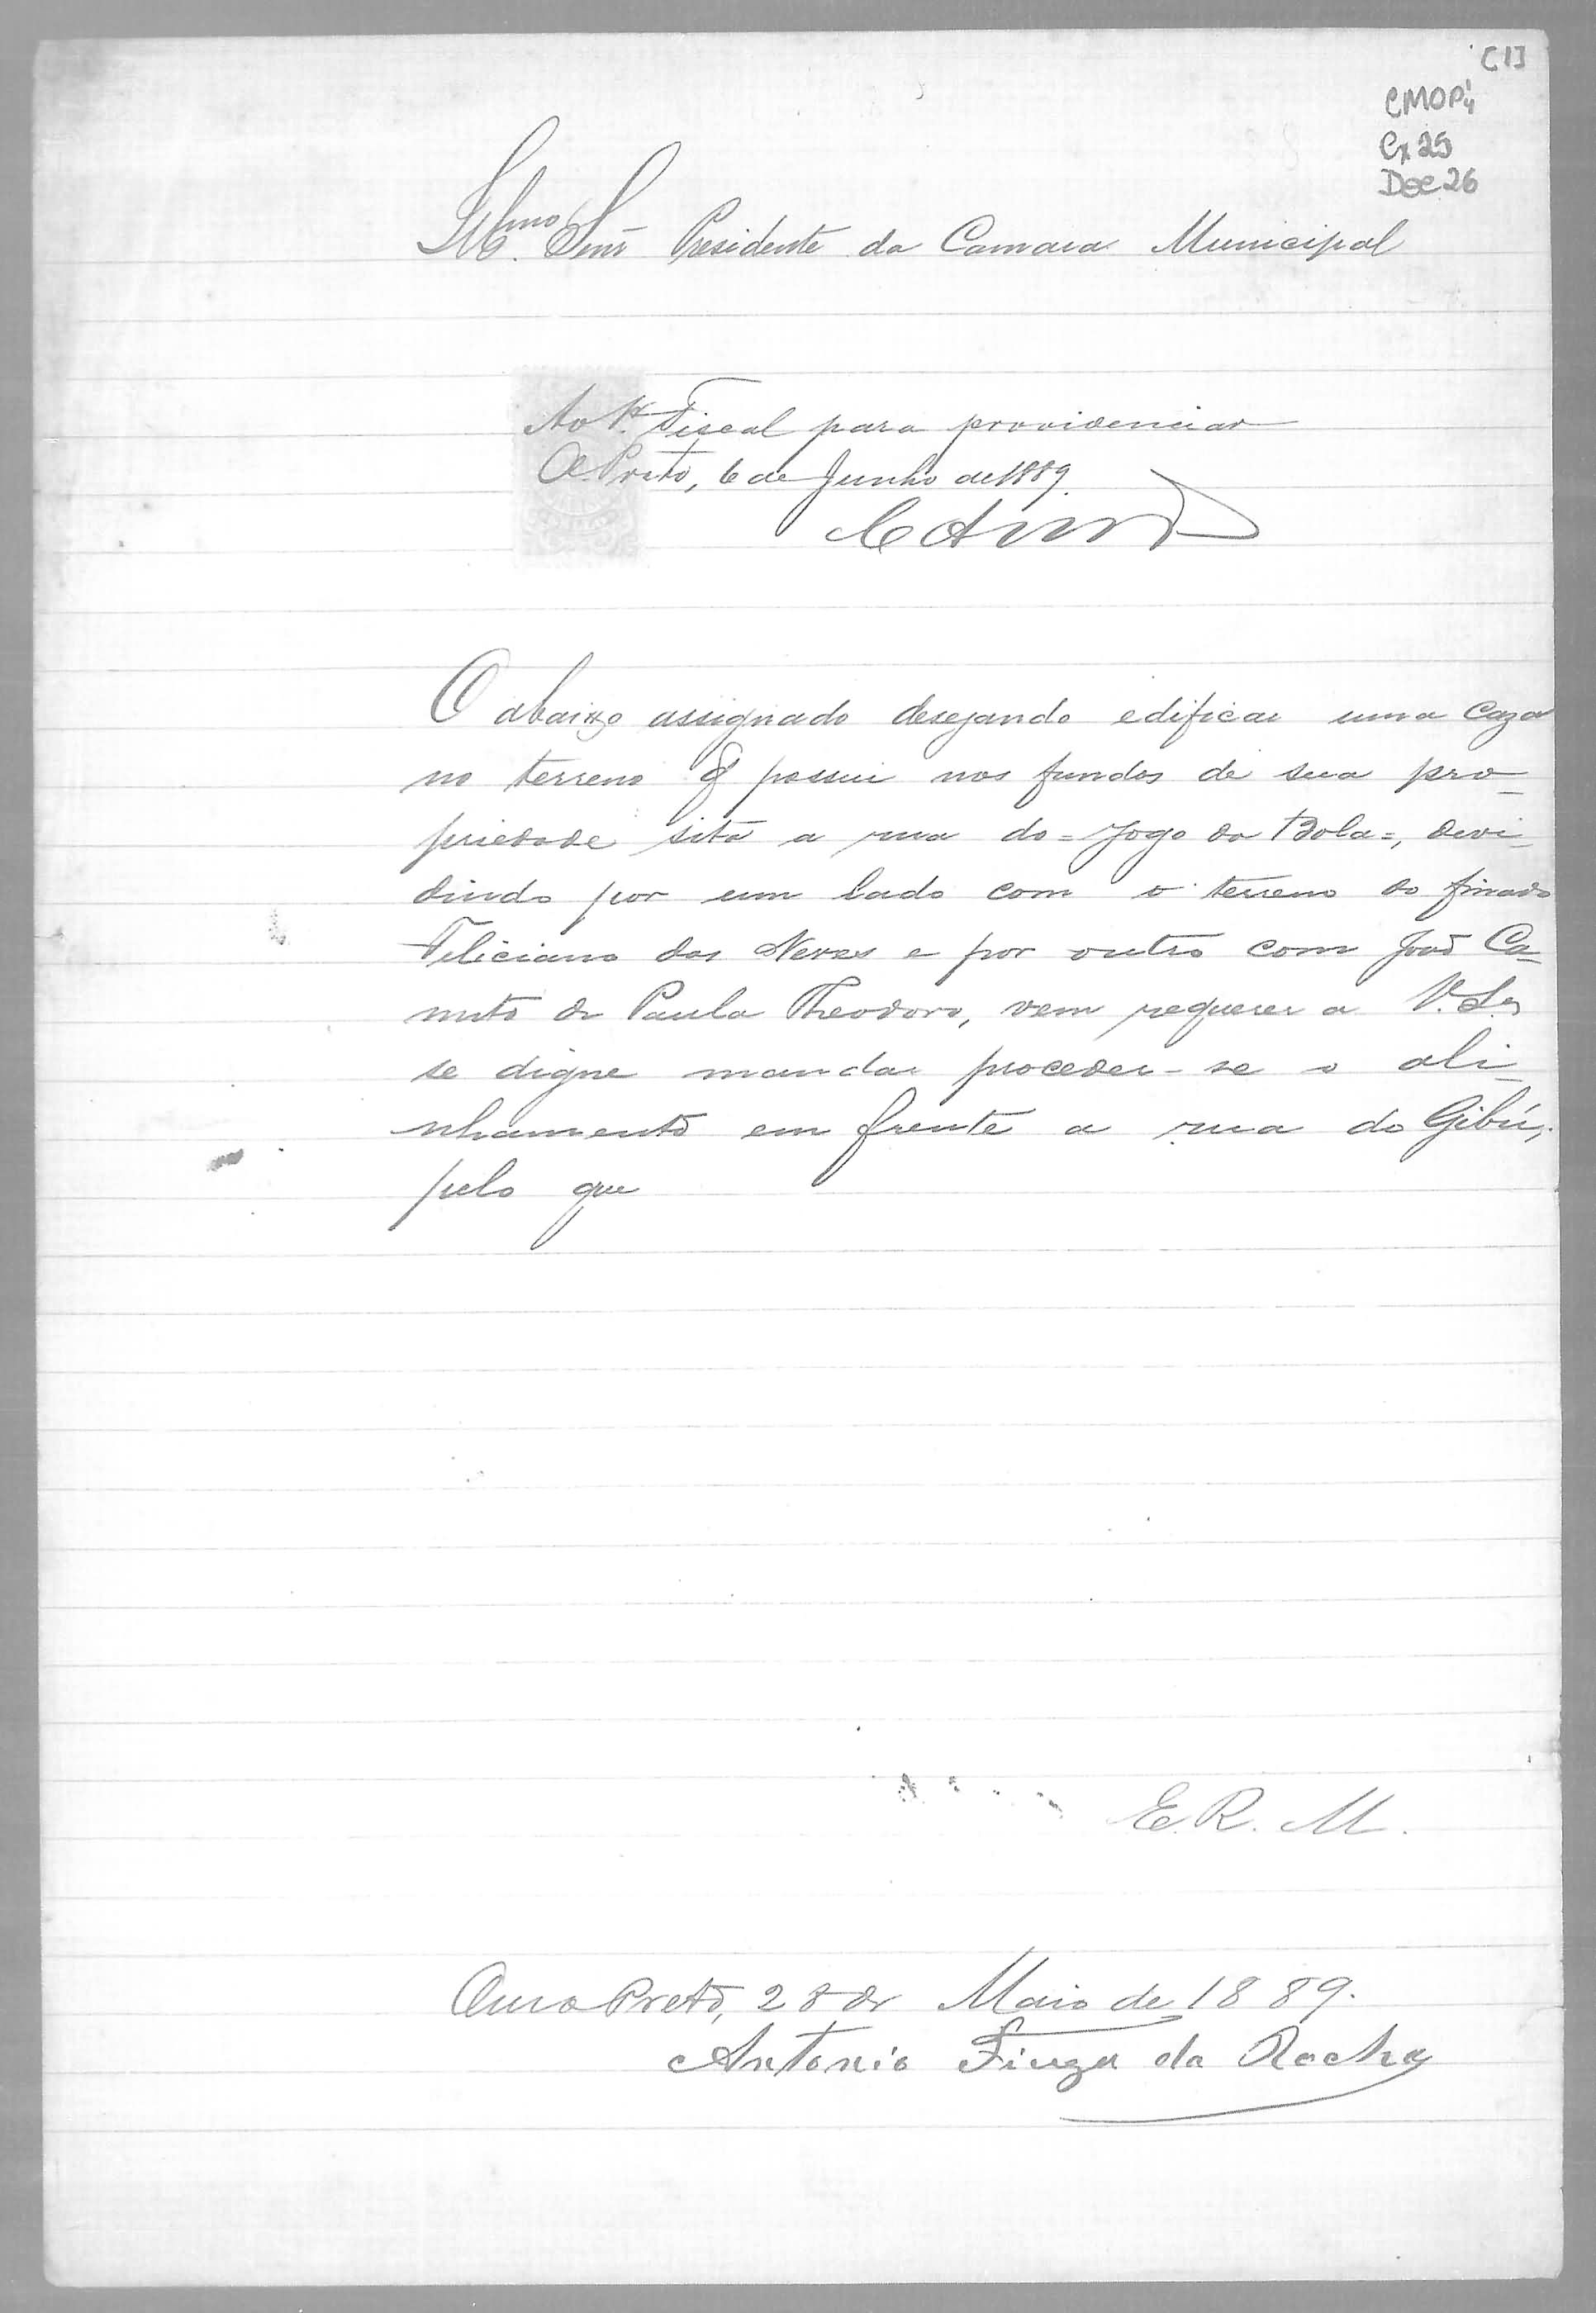 [1]
CMOP 4
Cx 25
Doc 26
Illmo Senr Presidente da Camara Municipal
Ao Sr. Fiscal para providenciar
O. Preto, 6 de Junho de 1889.
O abaixo assignado desejando edificar uma caza
no terreno q possui nos fundos de sua pro-
priedade sita a rua do = Jogo da Bola =, devi-
dindo por um lado com o terreno do finado
Feliciano das Neves e por outro com João Ca-
nuto de Paula Theodoro, vem requerer a V. Sa
se digne mandar proceder-se o ali-
nhamento em frente a rua do Gibú,
pelo que
E. R. M.
Ouro Preto, 28 de Maio de 1889.
Antonio Fiuza da Rocha